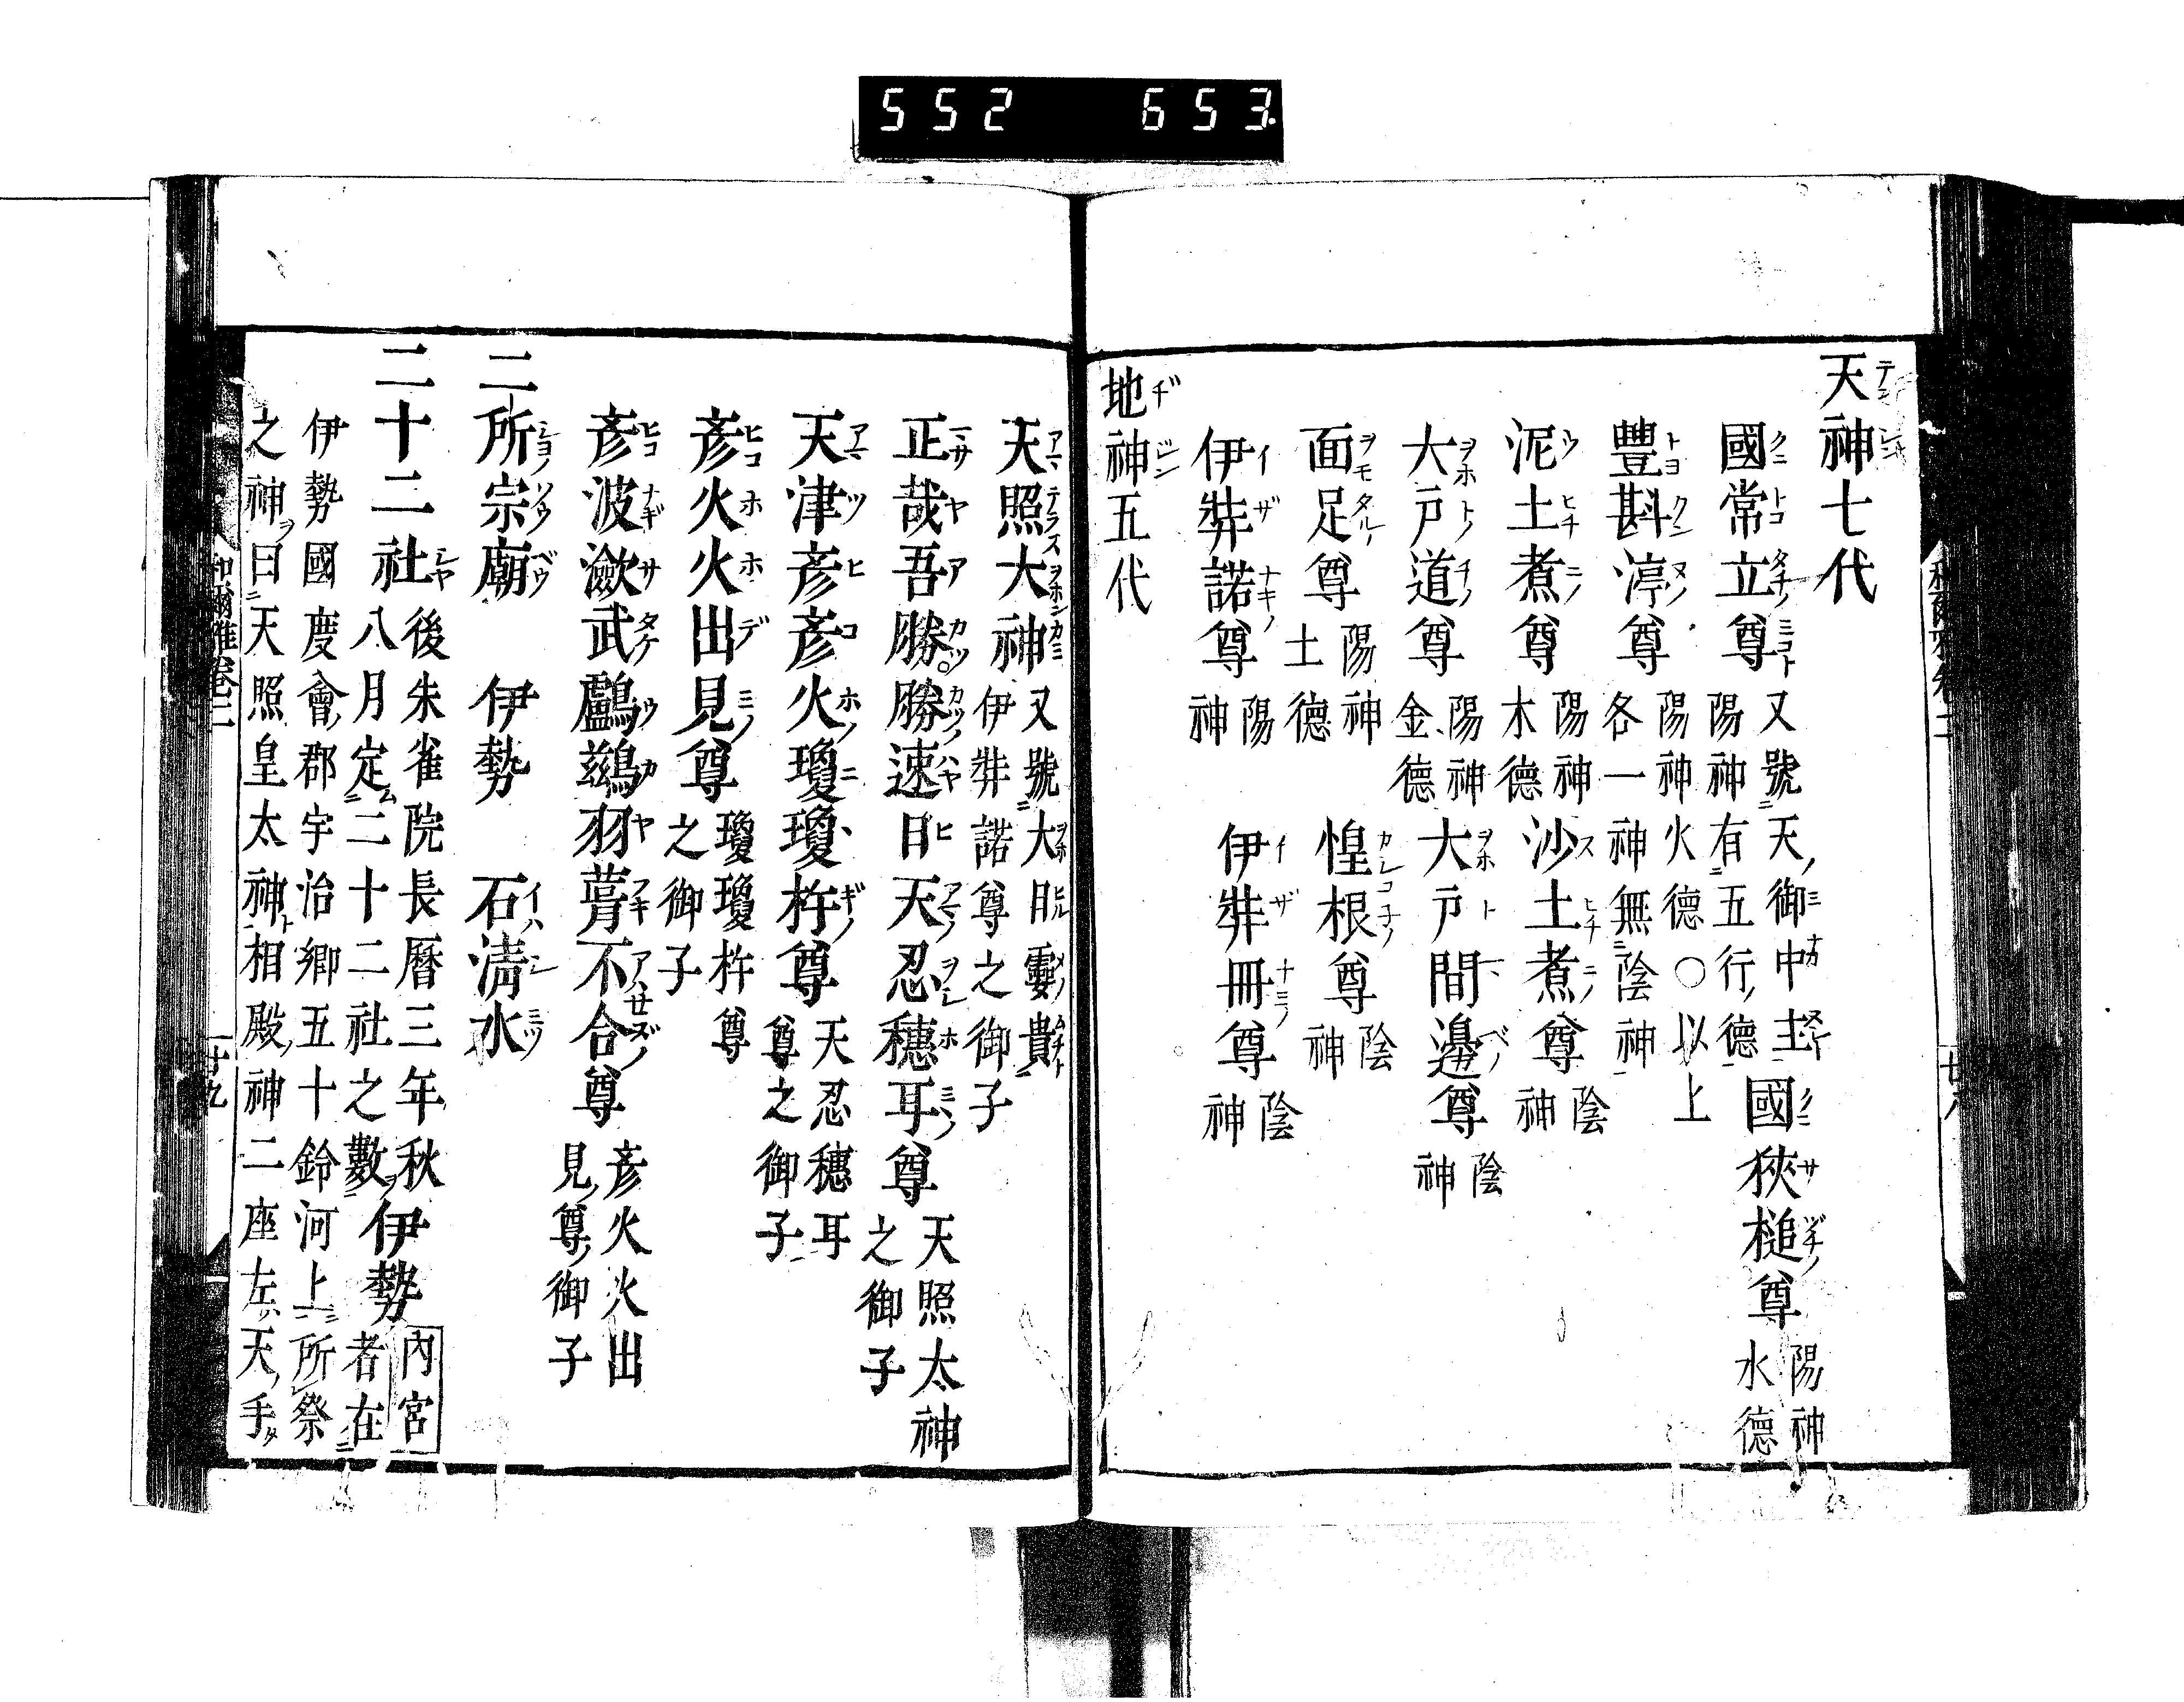 552 653
天神七代
國常立尊 又號天御中主 陽神有五行德 國狹槌尊 陽神 水德
豐斟渟尊 陽神火德○以上 各一神無陰神
泥土煮尊 陽神 木德 沙土煮尊 陰神
大戸道尊 陽神 金德 大戸間邊尊 陰神
面足尊 陽神 土德 惶根尊 陰神
伊弉諾尊 陽神 伊弉冊尊 陰神
地神五代
天照大神 又號大日孁貴 伊弉諾尊之御子
正哉吾勝勝速日天忍穗耳尊 天照太神之御子
天津彥彥火瓊瓊杵尊 天忍穗耳尊之御子
彥火火出見尊 瓊瓊杵尊之御子
彥波瀲武鸕鷀羽葺不合尊 彥火火出見尊御子
二所宗廟 伊勢 石清水
二十二社 後朱雀院長曆三年秋八月定二十二社之數 伊勢 內宮 者在
伊勢國度會郡宇治鄉五十鈴河上所祭
之神曰天照皇太神相殿神二座左天手
和爾雅卷二 廿九